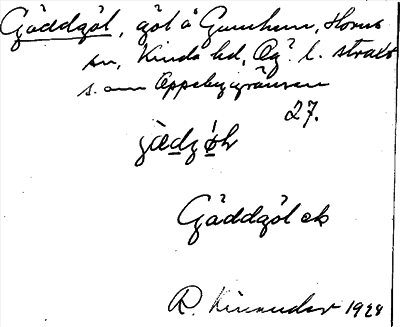 Gäddgöl, göl å Gumhem, Horns
sn, Kinda hd, Ög. l. strax
s. om Oppebygränsen
27.
Gäddgöl ek
R. Linnander 1928